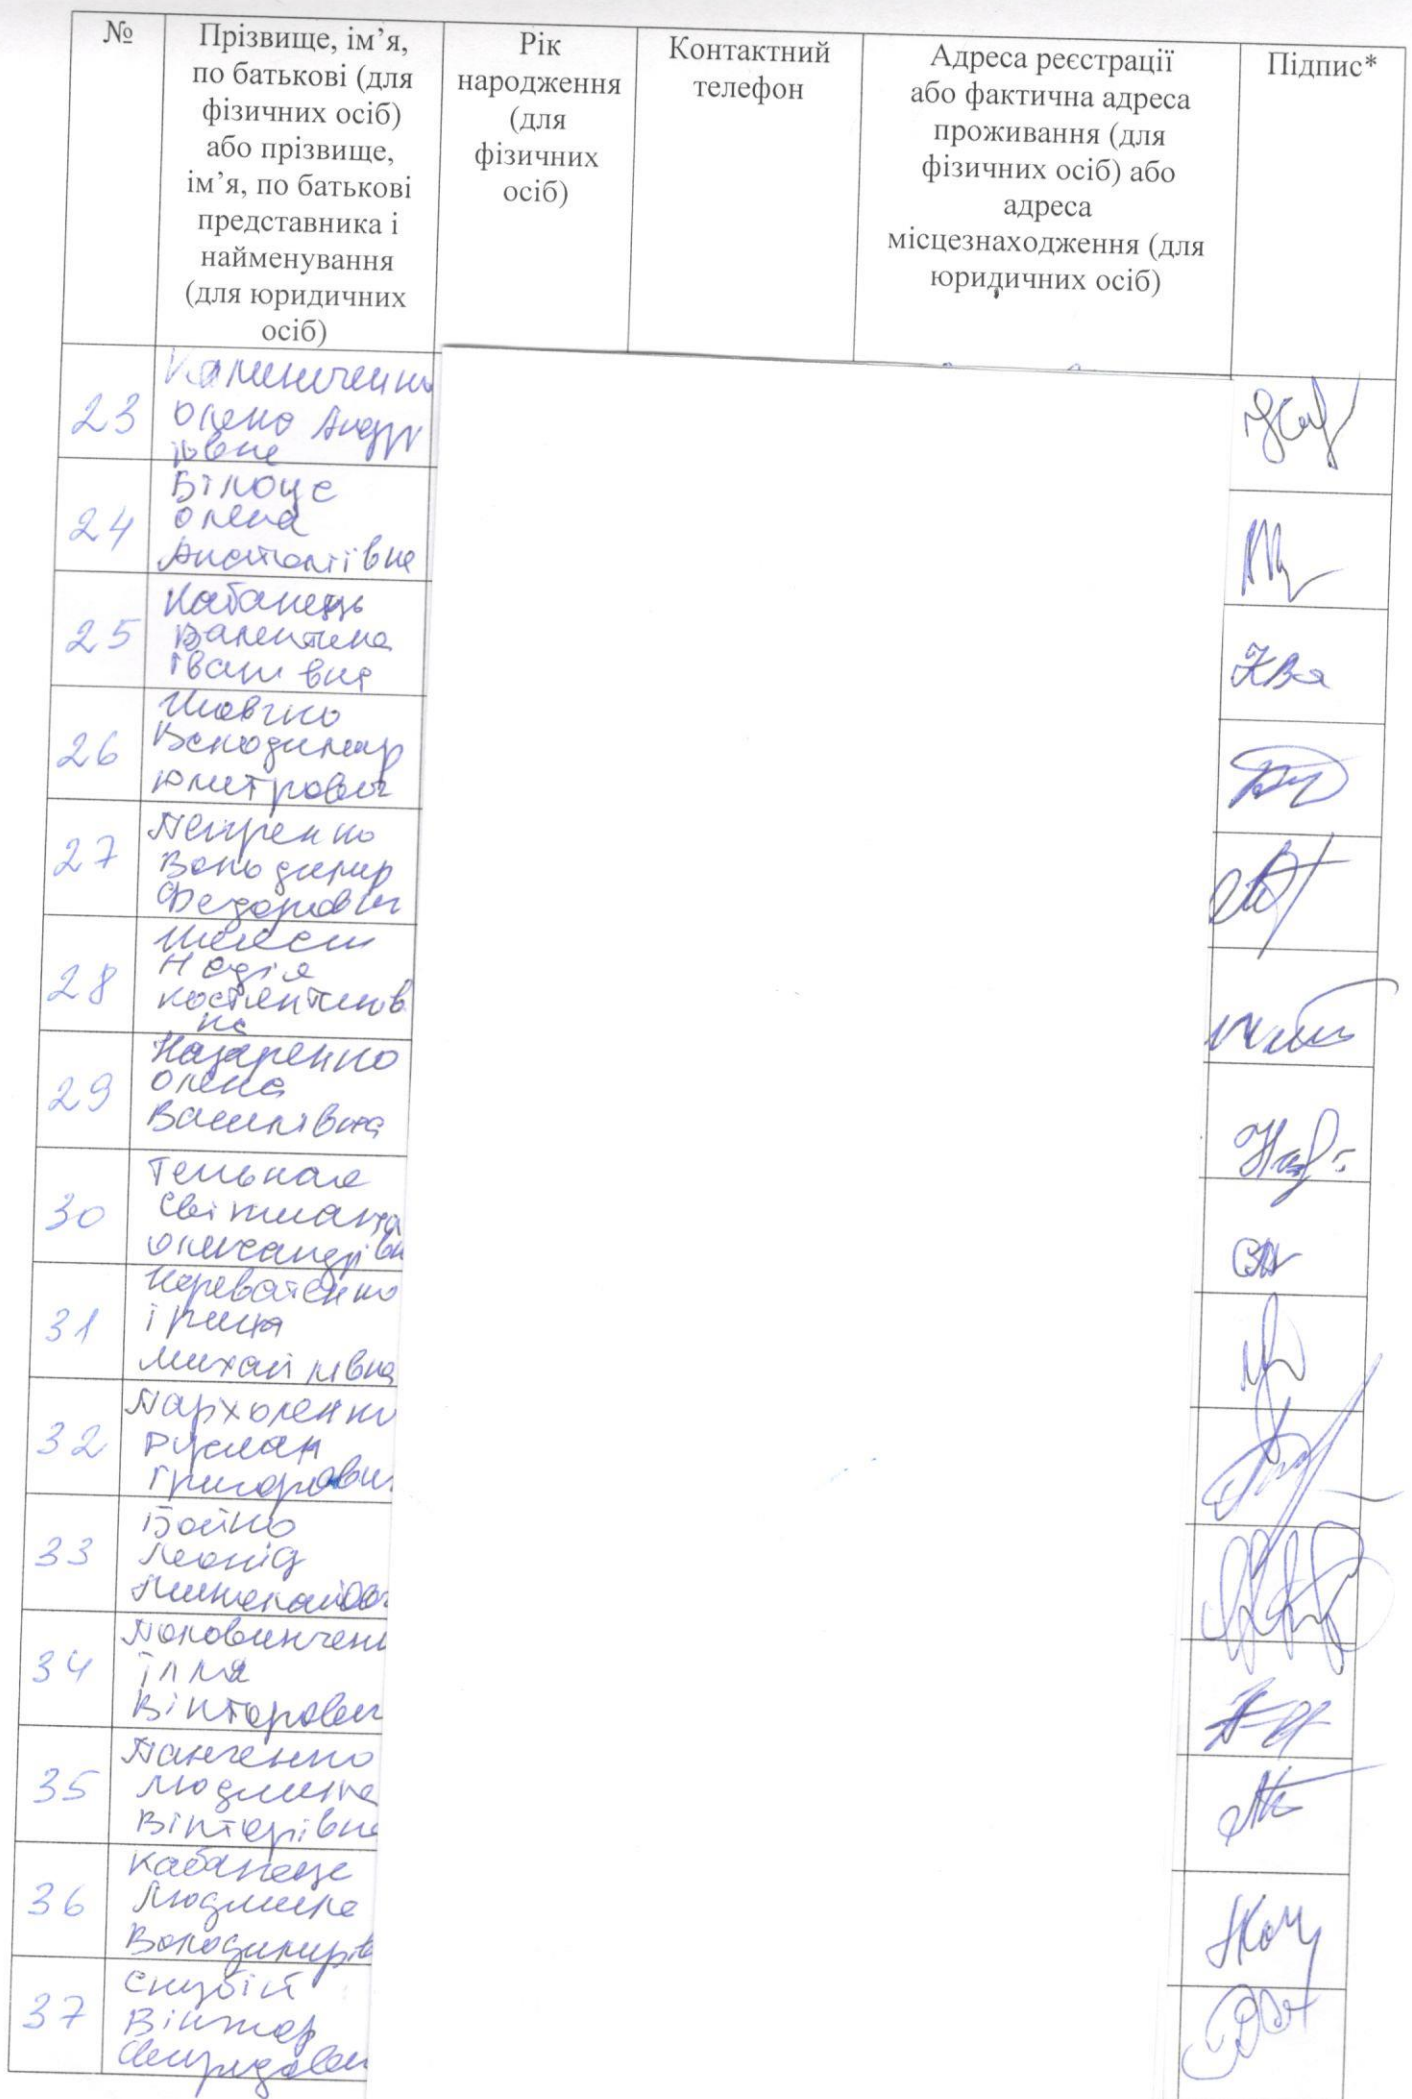 №
Прізвище, ім’я,
по батькові (для
фізичних осіб)
або прізвище,
ім’я, по батькові
представника і
найменування
(для юридичних
осіб)
Рік
народження
(для
фізичних
осіб)
Контактний
телефон
Адреса реєстрації
або фактична адреса
проживання (для
фізичних осіб) або
адреса
місцезнаходження (для
юридичних осіб)
Підпис*
23
Олена Андрі
ївна
24
Білоус
Олена
Анатоліївна
25
Кабанець
Валентина
Іванівна
26
Володимир
Дмитрович
27
Петренко
Володимир
Федорович
28
Шелест
Надія
Костянтинів
на
29
Назаренко
Олена
Василівна
30
Світлана
Олександрівн
31
Ірина
Михайлівна
32
Пархоменко
Руслан
Григорович
33
Бойко
Леонід
34
Ілля
Вікторович
35
Панченко
Людмила
Вікторівна
36
Кабанець
Людмила
Володимирів
37
Віктор